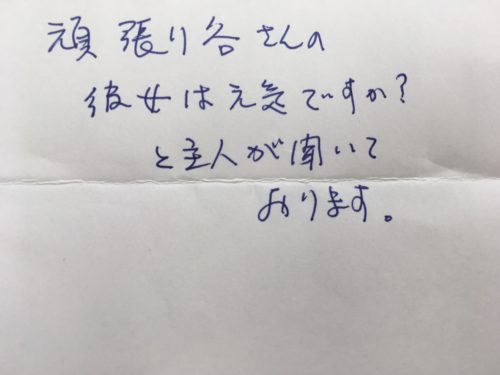 頑張り谷さんの
彼女は元気ですか?
と主人が聞いて
おります。